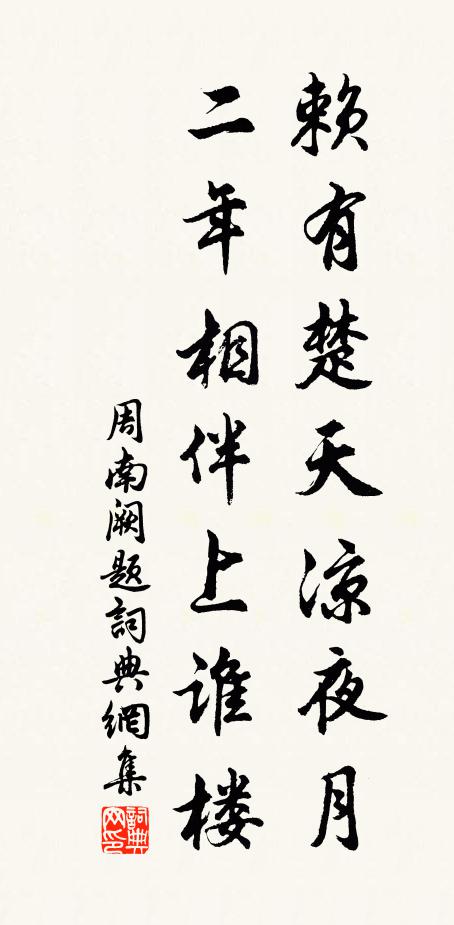 赖有楚天涼夜月
二年相伴上谁楼
周南阙题詞典網集
詞典网印